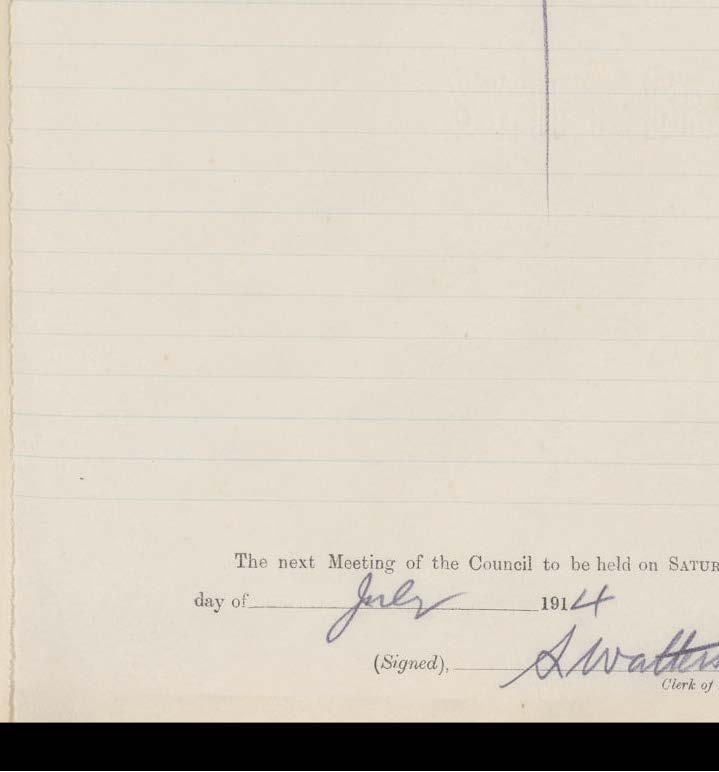 The next Meeting of the Council to be held on SATUR
day of July 1914
(Signed), S Watters
Clerk of